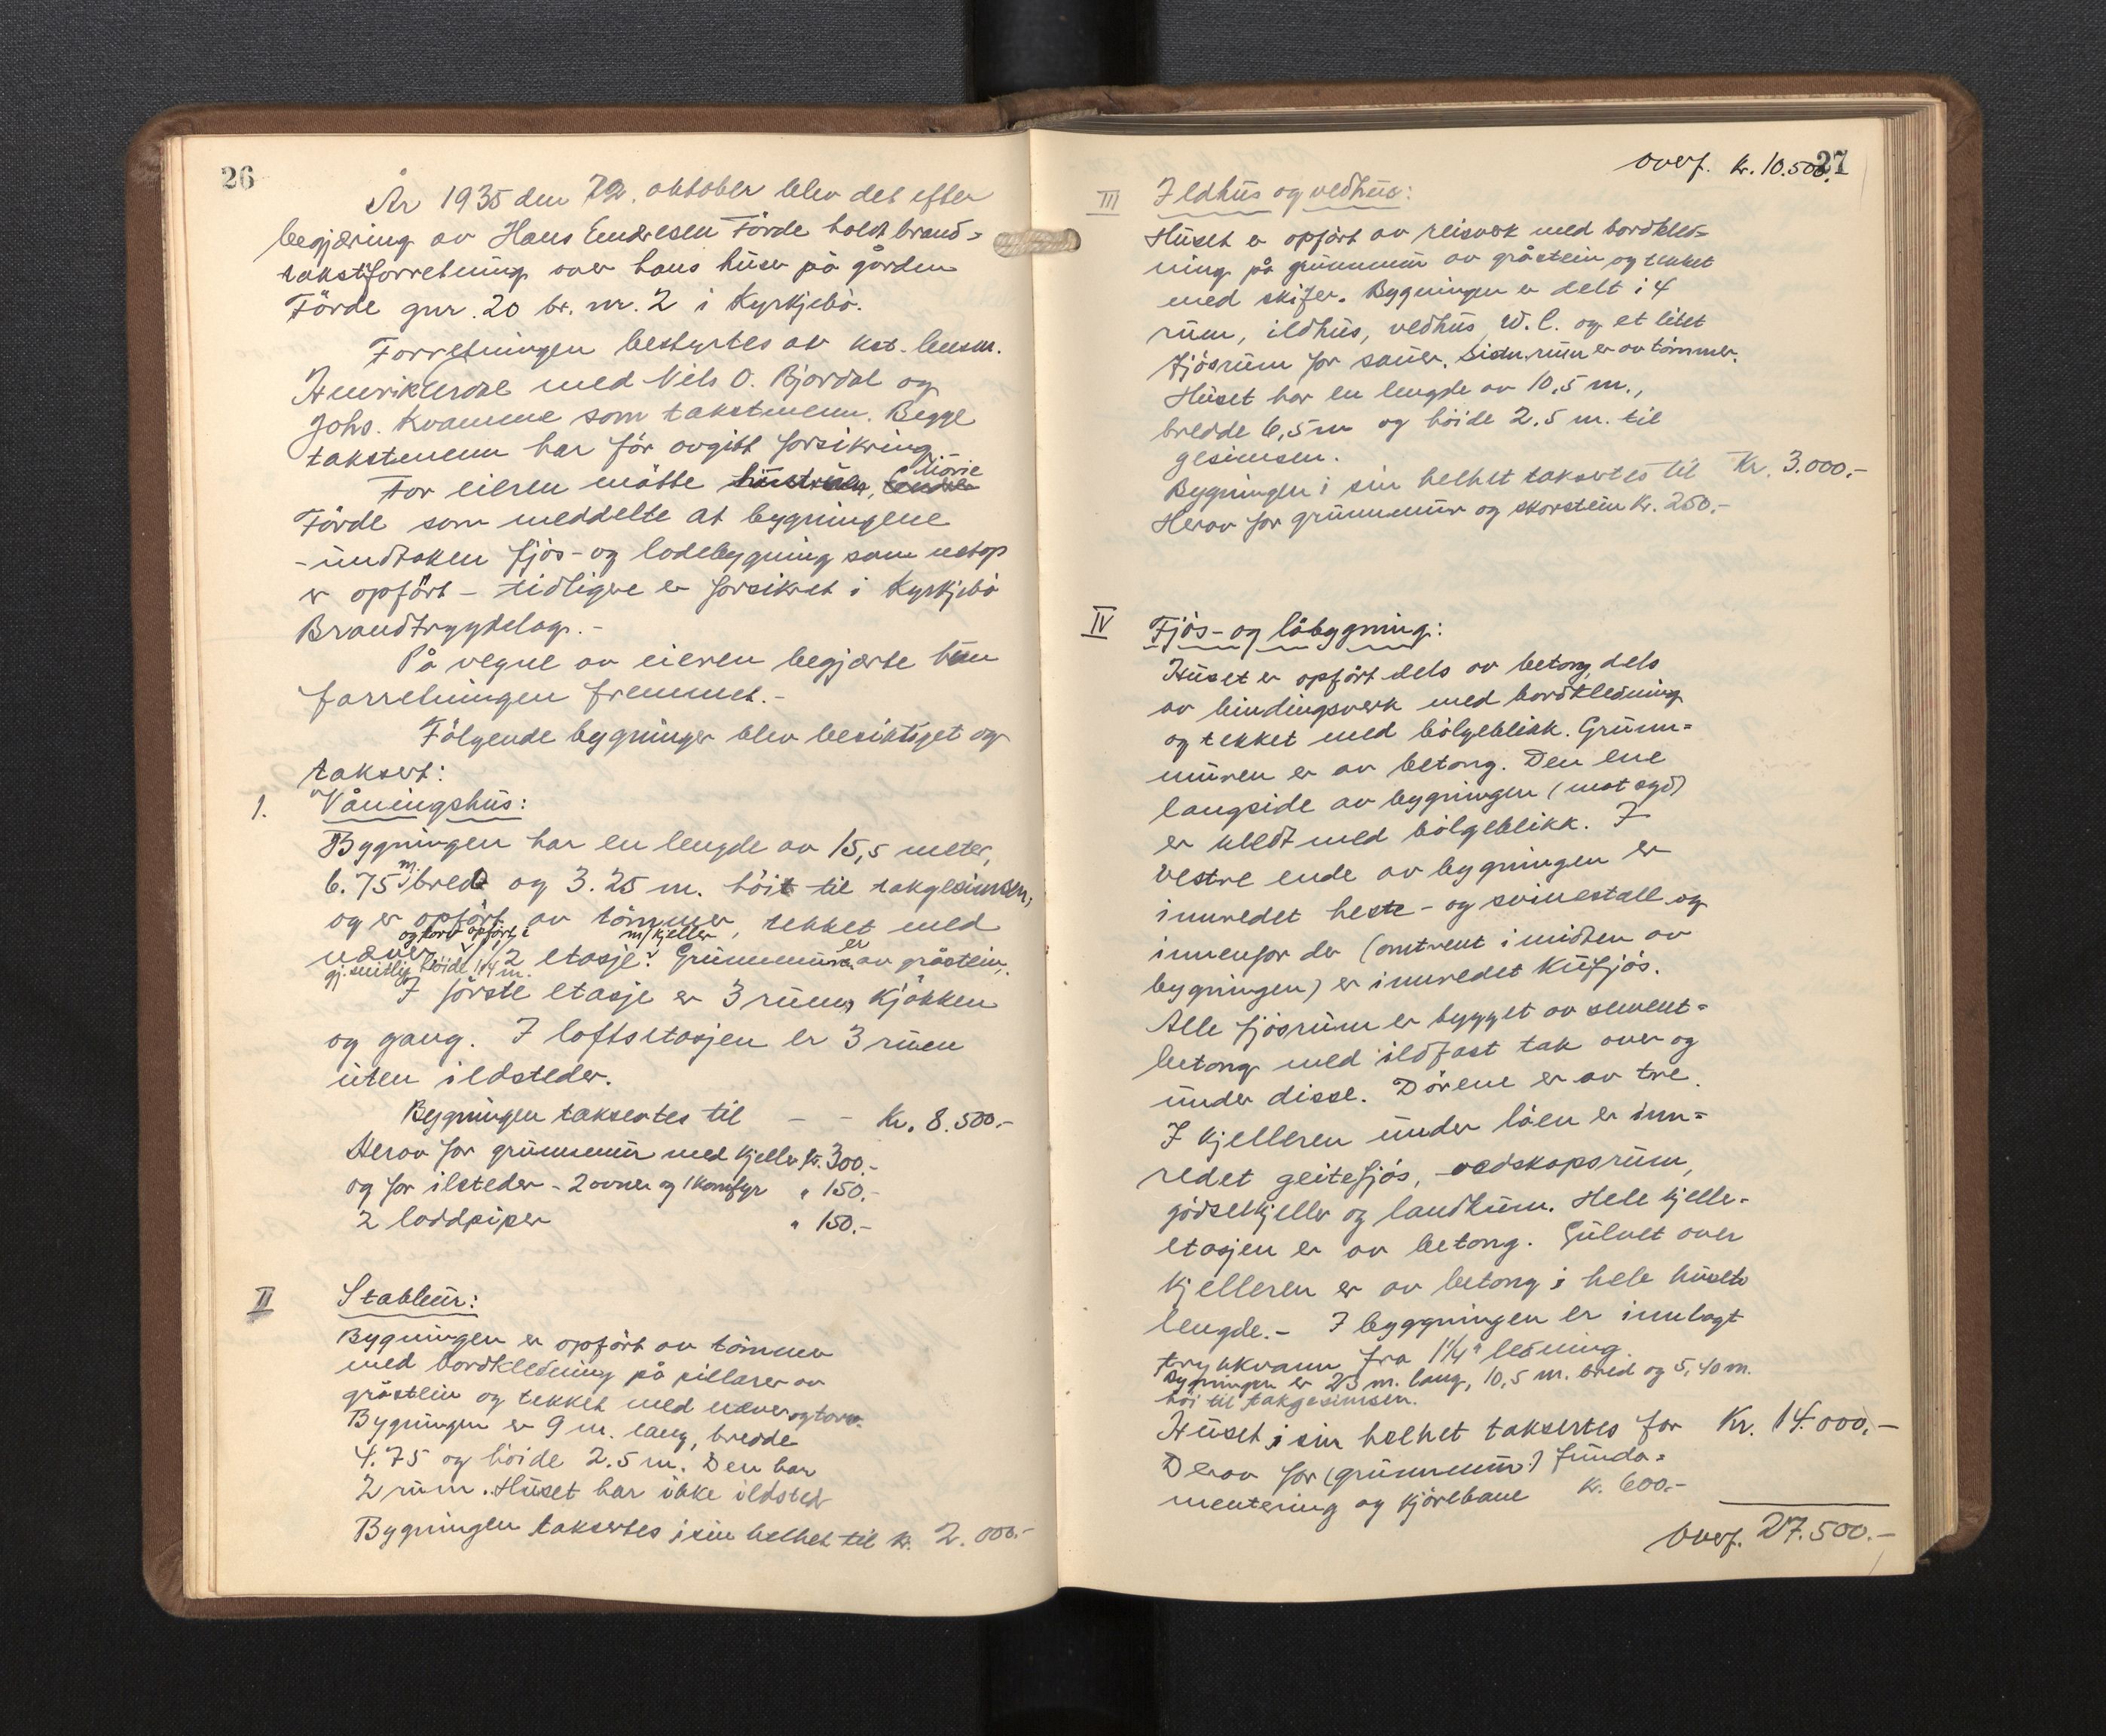 26
År 1935 den 22. oktober blev det efter
begjæring av Hans Endresen Förde holdt brand=
takstforretning over hans huser på gården
Förde gnr. 20 br. nr. 2 i Kyrkjebö.
Forretningen bestyrtes av kst. lensm.
Henrik Erdal med Nils O. Bjordal og
Johs. Kvamme som takstmenn. Begge
takstmenn har för avgitt forsikring.-
For eieren mötte hustruen, Marie
Förde som meddelte at bygningene
- undtaken fjös- og lodebygning som netop
er opfört - tidligere er forsikret i Kyrkjebö
Brandtrygdelag.-
På vegne av eieren begjærte hun
forretningen fremmet.-
Fölgende bygninger blev besiktiget og
taksert:
1. Våningshus:
Bygningen har en lengde av 15,5 meter,
6.75 m. bred og 3.25 m. höi til takgesimsen,
og er opfört av tömmer, tekket med
never og torv opfört i 1/2 etasje m/kjeller. Grunnmuren er av gråstein,
gj. snitlig höide 1/4 m.
I förste etasje er 3 rum, kjökken
og gang. I loftsetasjen er 3 rum
uten ildsteder.
Bygningen taksertes til - - Kr. 8.500.-
Herav for grunnmur med kjeller kr. 300.-
og for ilsteder - 2 ovner og 1 komfyr " 150.-
2 loddpiper " 150.-
II Stabbur:
Bygningen er opfört av tömmer
med bordkledning på pillarer av
gråstein og tekket med never og torv.
Bygningen er 9 m. lang, bredde
4.75 og höide 2.5 m. Den har
2 rum. Huset har ikke ildsted
Bygningen taksertes i sin helhet til kr. 2.000.-
27
overf. kr. 10.500.-
III Ildhus og vedhus:
Huset er opfört av reisverk med bordkled=
ning på grunnmur av gråstein og tekket
med skifer. Bygningen er delt i 4
rum, ildhus, vedhus W.C. og et litet
fjösrum for sauer. Siste rum er av tömmer.
Huset har en lengde av 10,5 m.,
bredde 6,5 m og höide 2.5 m. til
gesimsen.
Bygningen i sin helhet taksertes til Kr. 3.000.-
Herav for grunnmur og skorstein kr. 250.-
IV Fjös- og löbygning:
Huset er opfört dels av betong, dels
av bindingsverk med bordkledning
og tekket med bölgeblikk. Grunn=
muren er av betong. Den ene
langside av bygningen (mot syd)
er kledt med bölgeblikk. I
vestre ende av bygningen er
innredet heste- og svinestall og
innenfor der (omtrent i midten av
bygningen) er innredet kufjös.
Alle fjösrum er bygget av sement=
betong med ildfast tak over og
under disse. Dörene er av tre.
I kjelleren under låen er inn=
redet geitefjös, redskapsrum,
gjödselkjeller og landkum. Hele kjeller-
etasjen er av betong. Gulvet over
kjelleren er av betong i hele husets
lengde.- I byggningen er innlagt
trykkvann fra 1 1/4" ledning.
Bygningen er 23 m. lang, 10,5 m. bred og 5,40 m.
höi til takgesimsen.
Huset i sin helhet taksertes for Kr. 14.000.-
Derav for (grunnmur) funda=
mentering og kjörebane kr. 600.-
Overf. 27.500.-